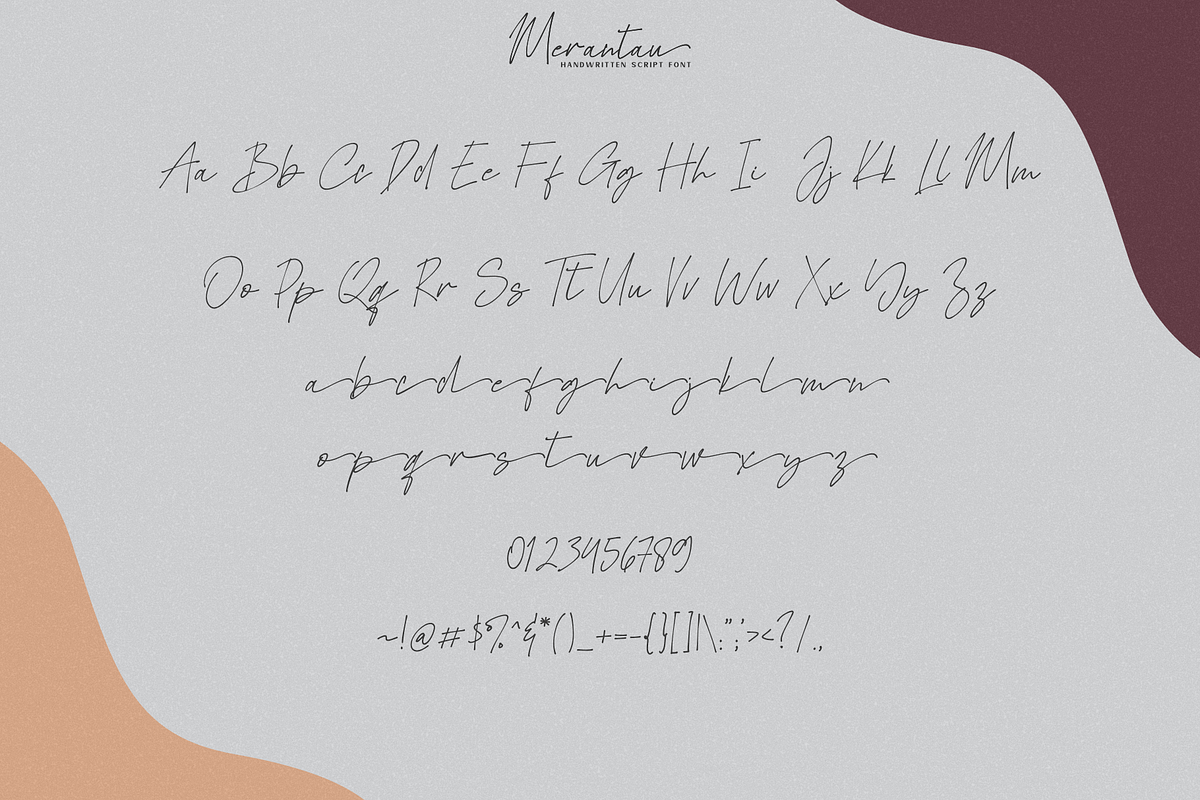 Merantau
HANDWRITTEN SCRIPT FONT
Aa Bb Cc Dd Ee Ff Gg Hh Ii Jj Kk Ll Mm
Oo Pp Qq Rr Ss Tt Uu Vv Ww Xx Yy Zz
abcdefghijklmn
opqrstuvwxyz
0123456789
~!@#$%^&*()_+=-{}[]|\:";'><?/.,